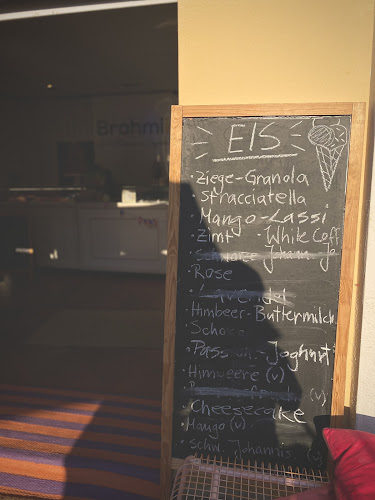 Brahmi
EIS
· Ziege-Granola
· Stracciatella
· Mango-Lassi
· Zimt · White Coff
· Schwarze Johann Jo
· Rose
· Lavendel
· Himbeer-Buttermilch
· Scho
· Passion.-Joghurt
· Himbeere (v)
(v)
· Cheesecake
· Mango (v)
· Schw. Johannis. (v)